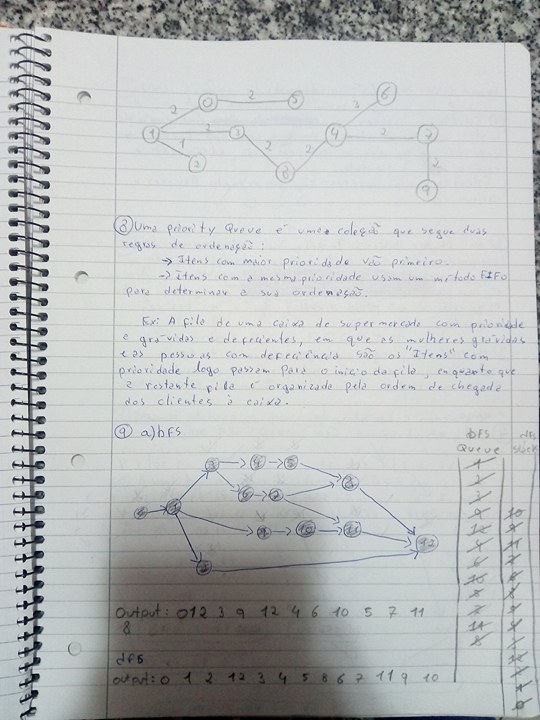 0 2 5 6
2 3
1 2 3 4 2 7
1 2 2 2
2 8 9
⑧ Uma priority Queue é uma coleção que segue duas
regras de ordenação:
→ Itens com maior prioridade vão primeiro.
→ Itens com a mesma prioridade usam um método FIFO
para determinar a sua ordenação.
Ex: A fila de uma caixa de supermercado com prioridade
a grávidas e deficientes, em que as mulheres grávidas
e as pessoas com deficiência são os "Itens" com
prioridade logo passam para o início da fila, enquanto que
a restante fila é organizada pela ordem de chegada
dos clientes à caixa.
⑨ a) bfs
BFS dfs
Queue stack
3 4 5
6 7 8
0 1
9 10 11 12
2
Output: 0 1 2 3 9 12 4 6 10 5 7 11
8
dfs
output: 0 1 2 12 3 4 5 8 6 7 11 9 10